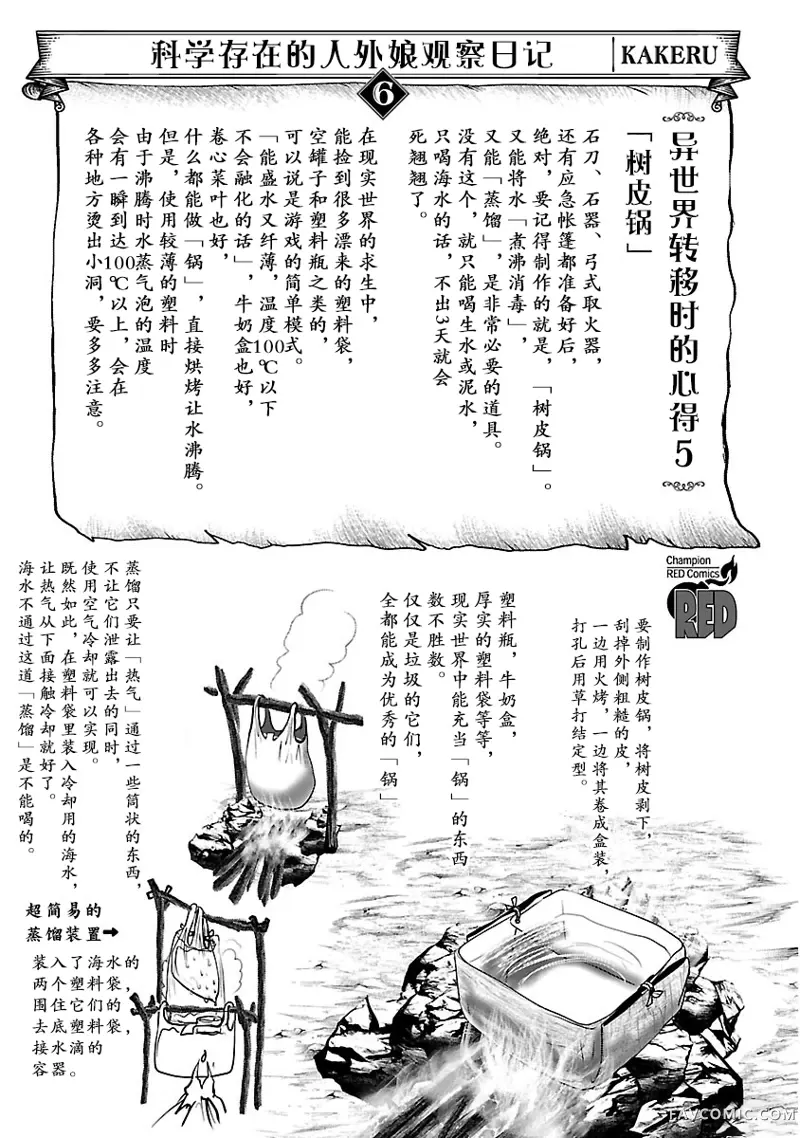 科学存在的人外娘观察日记
KAKERU
6
异世界转移时的心得5
「树皮锅」
石刀、石器、弓式取火器,
还有应急帐篷都准备好后,
绝对,要记得制作的就是,「树皮锅」。
又能将水「煮沸消毒」,
又能「蒸馏」,是非常必要的道具。
没有这个,就只能喝生水或泥水,
只喝海水的话,不出3天就会
死翘翘了。
在现实世界的求生中,
能捡到很多漂来的塑料袋,
空罐子和塑料瓶之类的,
可以说是游戏的简单模式。
「能盛水又纤薄,温度100℃以下
不会融化的话」,牛奶盒也好,
卷心菜叶也好,
什么都能做「锅」,直接烘烤让水沸腾。
但是,使用较薄的塑料时
由于沸腾时水蒸气泡的温度
会有一瞬到达100℃以上,会在
各种地方烫出小洞,要多多注意。
Champion
RED Comics
RED
要制作树皮锅,将树皮剥下,
刮掉外侧粗糙的皮,
一边用火烤,一边将其卷成盒装,
打孔后用草打结定型。
塑料瓶,牛奶盒,
厚实的塑料袋等等,
现实世界中能充当「锅」的东西
数不胜数。
仅仅是垃圾的它们,
全都能成为优秀的「锅」
蒸馏只要让「热气」通过一些筒状的东西,
不让它们泄露出去的同时,
使用空气冷却就可以实现。
既然如此,在塑料袋里装入冷却用的海水,
让热气从下面接触冷却就好了。
海水不通过这道「蒸馏」是不能喝的。
超简易的
蒸馏装置➡
装入了海水的
两个塑料袋,
围住它们的
去底塑料袋,
接水滴的
容器。
FAVCOMIC.COM